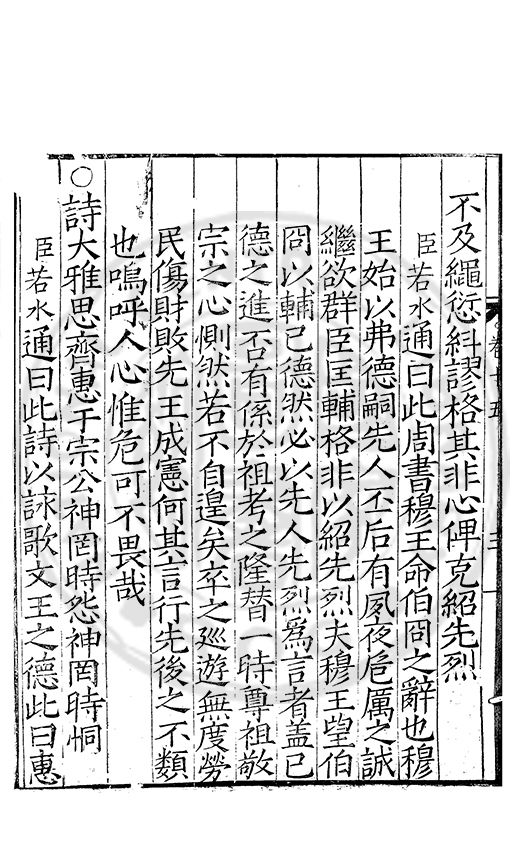 不及繩愆糾謬格其非心俾克紹先烈
臣若水通曰此周書穆王命伯冏之辭也穆
王始以弗德嗣先人丕后有夙夜危厲之誠
繼欲群臣匡輔格非以紹先烈夫穆王望伯
冏以輔已德然必以先人先烈為言者盖已
德之進否有係於祖考之隆替一時尊祖敬
宗之心惻然若不自遑矣卒之廵遊無度勞
民傷財敗先王成憲何其言行先後之不類
也嗚呼人心惟危可不畏哉
○詩大雅思齊惠于宗公神罔時怨神罔時恫
臣若水通曰此詩以詠歌文王之德此曰惠
卷十五
三